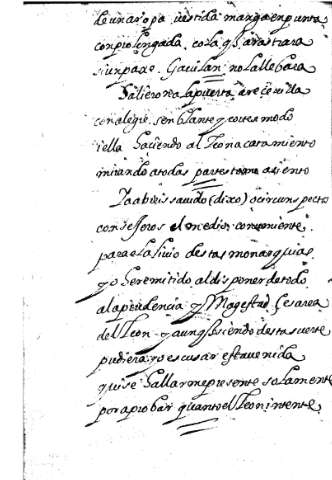 de una ropa vestida manga en punta
con prolongada cola q̃ arastrara
si un paxe Gavilan no la llebara
Salieron a la puerta a recevilla
con alegre senblante y cortes modo
i ella haciendo al Leon acatamiento
mirando a todas partes tomo asiento
Ya abreis savido (dixo) o circunspectos
consejeros el medio conveniente
para el alivio destas monarquias
yo he remitido al disponer de todo
a la prudencia y Magestad Cesarea
del Leon y aunq̃ siendo desta suerte
pudiera yo escusar esta venida
quise hallarme presente solamente
por aprobar quanto el Leon intente